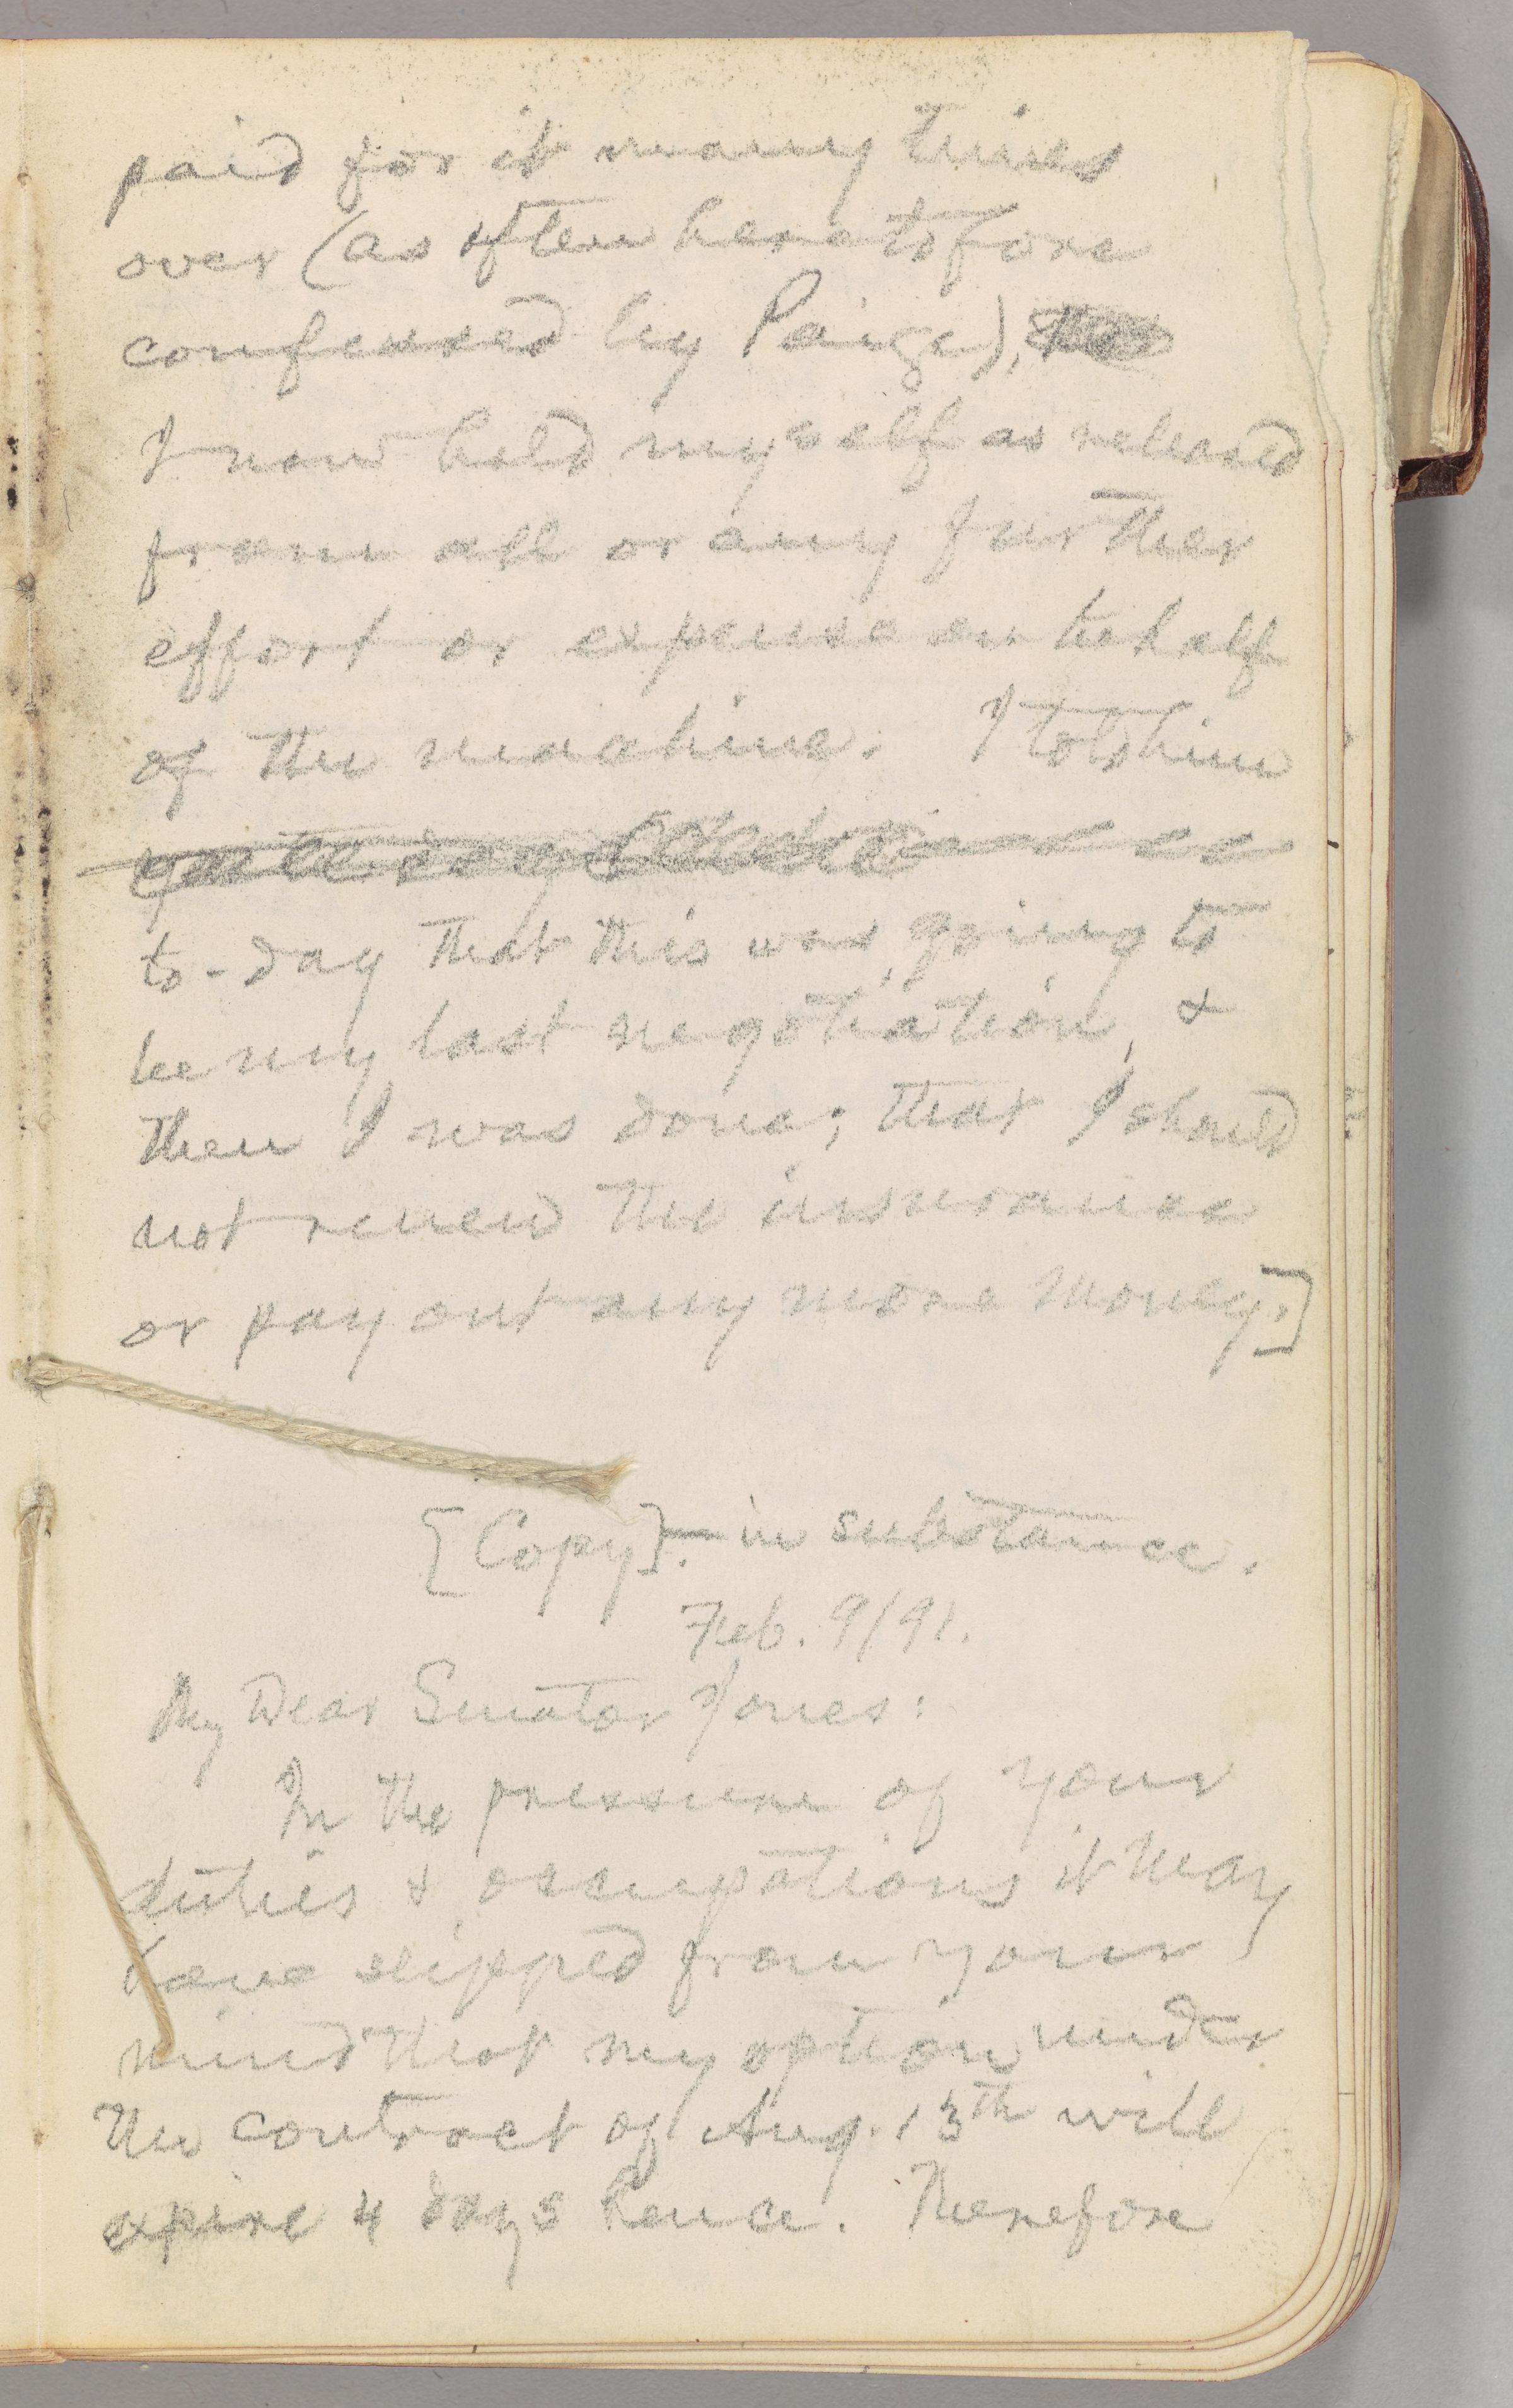 paid for it many times
over (as often heretofore
confessed by Paige),
I now hold myself as released
from all or any further
effort or expense on behalf
of the machine. I told him
to-day that this was going to
be my last negotiation, &
then I was done; that I should
not renew the insurance
or pay out any more money.]
[Copy]. — in substance.
Feb. 9/91.
My Dear Senator Jones:
In the pressure of your
duties & occupations it may
have slipped from your
mind that my option under
the contract of Aug. 13th will
expire 4 days hence. Therefore